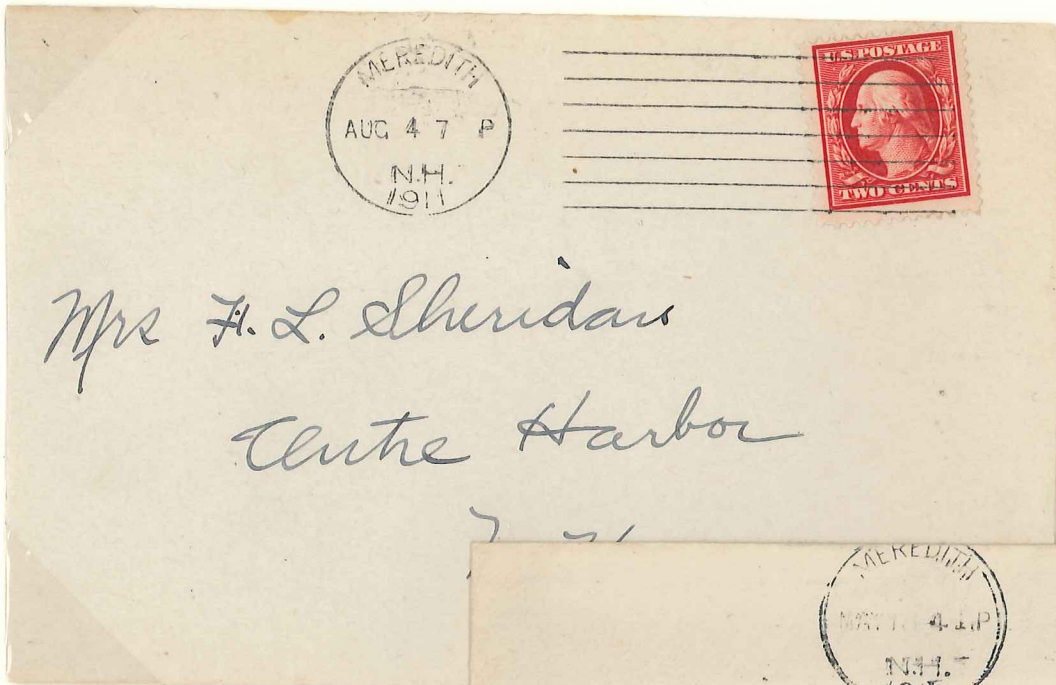 MEREDITH
AUG 4 7 P
N.H.
1911
U.S. POSTAGE
TWO CENTS
Mrs F. L. Sheridan
Centre Harbor
MEREDITH
4 1 P
N.H.